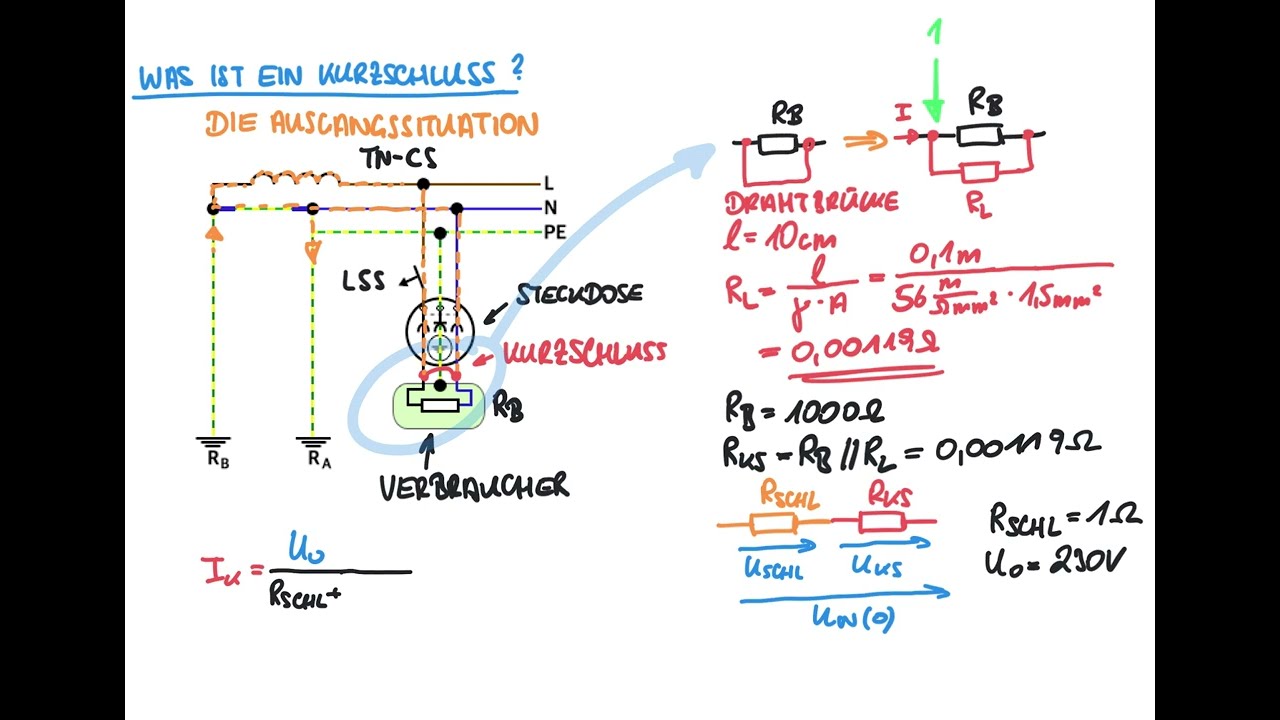 WAS IST EIN KURZSCHLUSS?
DIE AUSGANGSSITUATION
TN-CS
L
N
PE
LSS
STECKDOSE
KURZSCHLUSS
RB
VERBRAUCHER
RB
RA
IK = U0 / RSCHL +
1
RB
I
RB
RL
DRAHTBRÜCKE
l = 10cm
RL = l / γ · A = 0,1m / 56 m/Ωmm² · 1,5mm²
= 0,00119Ω
RB = 1000Ω
RKS = RB // RL = 0,00119Ω
RSCHL RKS
USCHL UKS
UN(0)
RSCHL = 1Ω
U0 = 230V